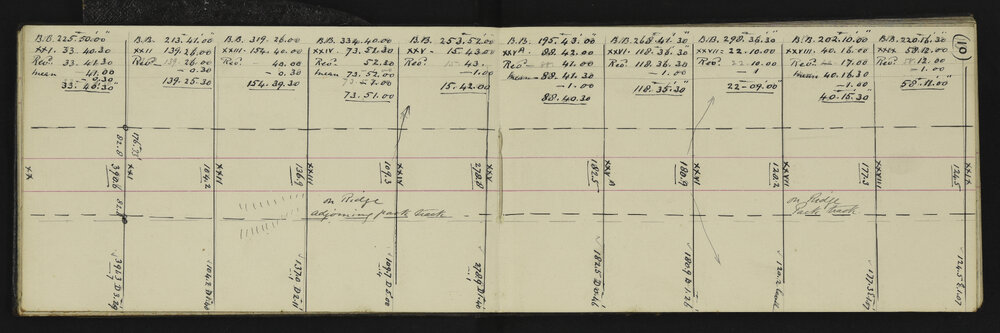 B.B. 225.50.00"
XXI. 33.40.30
Rev. 33.41.30
mean 41.00
-0.30
33.40.30
B.B. 213.41.00"
XXII 139.26.00
Rev. 139.26.00
-0.30
139.25.30
B.B. 319.26.00
XXIII 154.40.00
Rev. 40.00
-0.30
154.39.30
B.B. 334.40.00
XXIV. 73.51.30
Rev. 52.30
mean 73.52.00
-1.00
73.51.00
B.B. 253.52.00
XXV 15.43.00
Rev. 15.43.
-1.00
15.42.00
B.B. 195.43.00"
XXVA. 88.42.00
Rev. 41.00
mean 88.41.30
-1.00
88.40.30
B.B. 268.41.30
XXVI 118.36.30
Rev. 118.36.30
-1.00
118.35.30
B.B. 298.36.30
XXVII 22.10.00
Rev. 22.10.00
-1
22-09.00
B.B. 202.10.00"
XXVIII. 40.16.00
Rev. 17.00
mean 40.16.30
-1.00
40.15.30
B.B. 220.16.30
XXIX 58.12.00
Rev. 58.12.00
-1.00
58.11.00
10
176.35
82.8
XX
390.6
XXI
104.2
XXII
136.9
XXIII
109.3
XXIV
278.8
XXV
182.5
XXV A
180.9
XXVI
120.2
XXVII
177.3
XXVIII
124.5
XXIX
on Ridge
adjoining pack track
on Ridge
Pack track